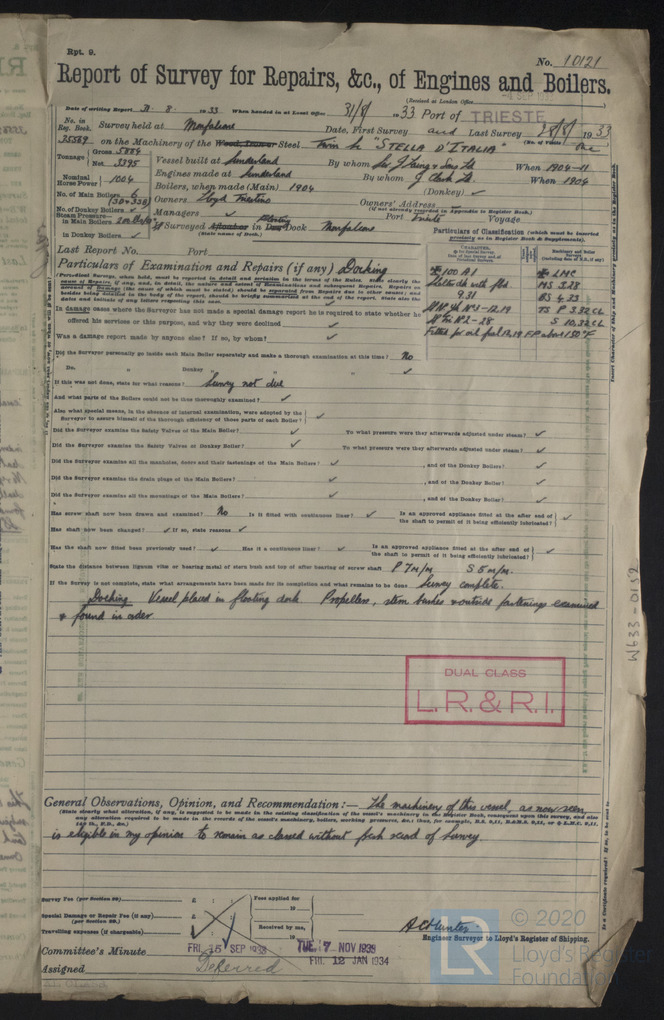 Rpt. 9.
No. 10121
Report of Survey for Repairs, &c., of Engines and Boilers.
(Received at London Office
Date of writing Report 31. 8. 1933 When handed in at Local Office 31/8/ 1933 Port of TRIESTE
No. in Reg. Book. Survey held at Monfalcone Date, First Survey and Last Survey 28/8/ 1933
on the Machinery of the Wood, Iron or Steel Twin Sc "STELLA D'ITALIA" (No. of Visits One
Tonnage Gross 5884 Net 3395 Vessel built at Sunderland By whom Sir J Laing & Sons Ld When 1904-11
Engines made at Sunderland By whom G Clark Ld When 1904
Nominal Horse Power 1004 Boilers, when made (Main) 1904 (Donkey) ✓
No. of Main Boilers 6 Owners Lloyd Triestino Owners' Address
(if not already recorded in Appendix to Register Book.)
No. of Donkey Boilers ✓ Managers ✓ Port Trieste Voyage
Steam Pressure— in Main Boilers
in Donkey Boilers ✓
If Surveyed Afloat or in Dry Dock floating Monfalcone
(State name of Dock.)
Particulars of Classification (which must be inserted precisely as in Register Book & Supplements).
Last Report No. Port
Particulars of Examination and Repairs (if any) Docking
100 A1
Shelter dk with fbd
9.31
Fitted for oil fuel 12.19 FP above 150°F
LMC
MS 3.28
BS 4.33
TS P 3.32 CL
S 10.32 CL
In damage cases where the Surveyor has not made a special damage report he is required to state whether he
offered his services or this purpose, and why they were declined ✓
Was a damage report made by anyone else? If so, by whom? ✓
Did the Surveyor personally go inside each Main Boiler separately and make a thorough examination at this time? No
Do. " Donkey " " " ✓
If this was not done, state for what reasons? Survey not due
And what parts of the Boilers could not be thoroughly examined? ✓
Also what special means, in the absence of internal examination, were adopted by the
Surveyor to assure himself of the thorough efficiency of those parts of each Boiler? ✓
Did the Surveyor examine the Safety Valves of the Main Boiler? ✓ To what pressure were they afterwards adjusted under steam? ✓
Did the Surveyor examine the Safety Valves of Donkey Boiler? ✓ To what pressure were they afterwards adjusted under steam? ✓
Did the Surveyor examine all the manholes, doors and their fastenings of the Main Boilers? ✓ , and of the Donkey Boilers? ✓
Did the Surveyor examine the drain plugs of the Main Boilers? ✓ , and of the Donkey Boiler? ✓
Did the Surveyor examine all the mountings of the Main Boilers? ✓ , and of the Donkey Boiler? ✓
Has screw shaft now been drawn and examined? No Is it fitted with continuous liner? ✓ Is an approved appliance fitted at the after end of
the shaft to permit of it being efficiently lubricated? ✓
Has shaft now been changed? ✓ If so, state reasons ✓
Has the shaft now fitted been previously used? ✓ Has it a continuous liner? ✓ Is an approved appliance fitted at the after end of
the shaft to permit of it being efficiently lubricated? ✓
State the distance between lignum vitæ or bearing metal of stern bush and top of after bearing of screw shaft P 7 m/m. S 5 m/m.
If the Survey is not complete, state what arrangements have been made for its completion and what remains to be done Survey complete.
Docking Vessel placed in floating dock. Propellers, stern bushes & outside fastenings examined
& found in order
W633-0132
DUAL CLASS
L.R. & R.I.
General Observations, Opinion, and Recommendation:— The machinery of this vessel, as now seen,
(State clearly what alteration, if any, is suggested to be made in the existing classification of the vessel's machinery in the Register Book, consequent upon this survey, and also
is eligible in my opinion to remain as classed without fresh record of Survey.
Survey Fee (per Section 29) £ : : Fees applied for
19
Special Damage or Repair Fee (if any) £ : :
(per Section 29.)
Received by me,
Travelling expenses (if chargeable) £ : : 19
A C Hunter
Engineer Surveyor to Lloyd's Register of Shipping.
Committee's Minute FRI 15 SEP 1933 TUE. 7 NOV 1933
FRI. 12 JAN 1934
Assigned Deferred
LR
© 2020
Lloyd's Register
Foundation